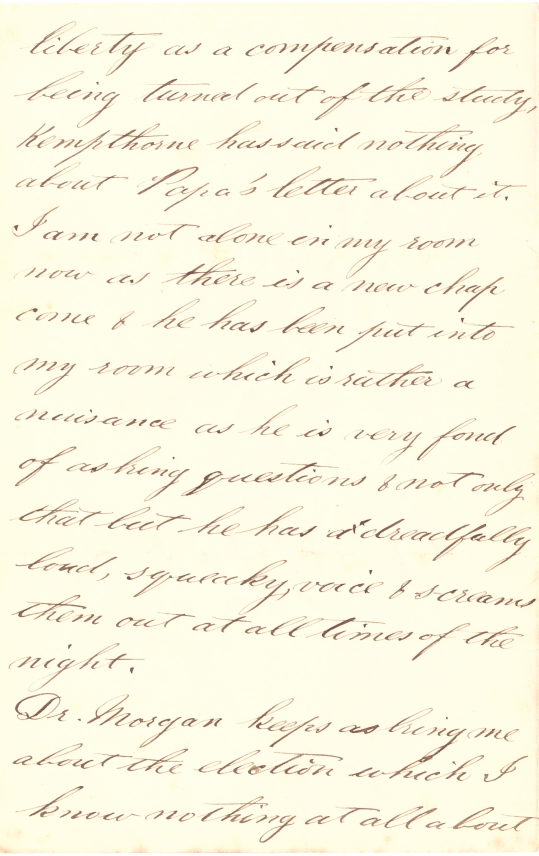 liberty as a compensation for
being turned out of the study,
Kempthorne has said nothing
about Papa's letter about it.
I am not alone in my room
now as there is a new chap
come & he has been put into
my room which is rather a
nuisance as he is very fond
of asking questions & not only
that but he has a dreadfully
loud, squeaky, voice & screams
them out at all times of the
night.
Dr. Morgan keeps asking me
about the election which I
know nothing at all about